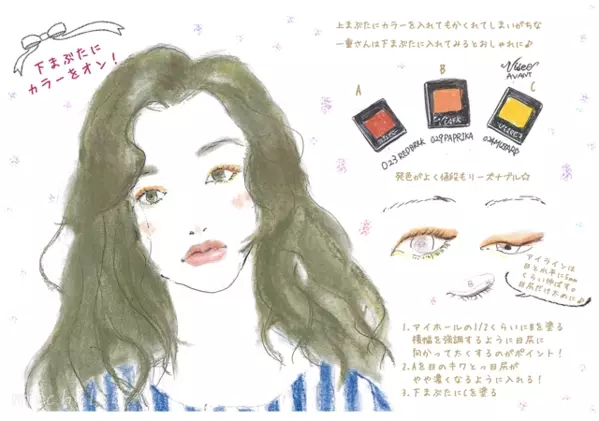 下まぶたに
カラーをオン！
上まぶたにカラーを入れてもかくれてしまいがちな
一重さんは下まぶたに入れてみるとおしゃれに♪
Visée
AVANT
A
B
C
023 RED BRICK
029 PAPRIKA
024 MUSTARD
発色がよく値段もリーズナブル☆
アイラインは
目と水平に5mm
くらい伸ばす。
目尻だけために♪
B
1. アイホールの1/2くらいにBを塗る
横幅を強調するように目尻に
向かってたくするのがポイント！
2. Aを目のキワとっ目尻が
やや濃くなるように入れる！
3. 下まぶたにCを塗る